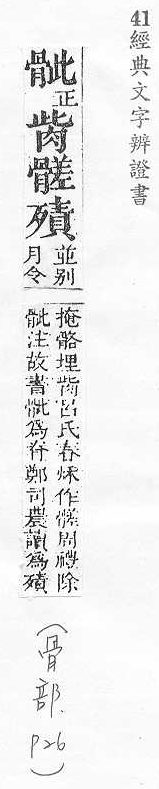 41經典文字辨證書
骴正胔髊㱴
並别
月令
掩骼埋胔呂氏春秋作髊周禮除
骴注故書骴為脊鄭司農讀為㱴
(骨部、p26)